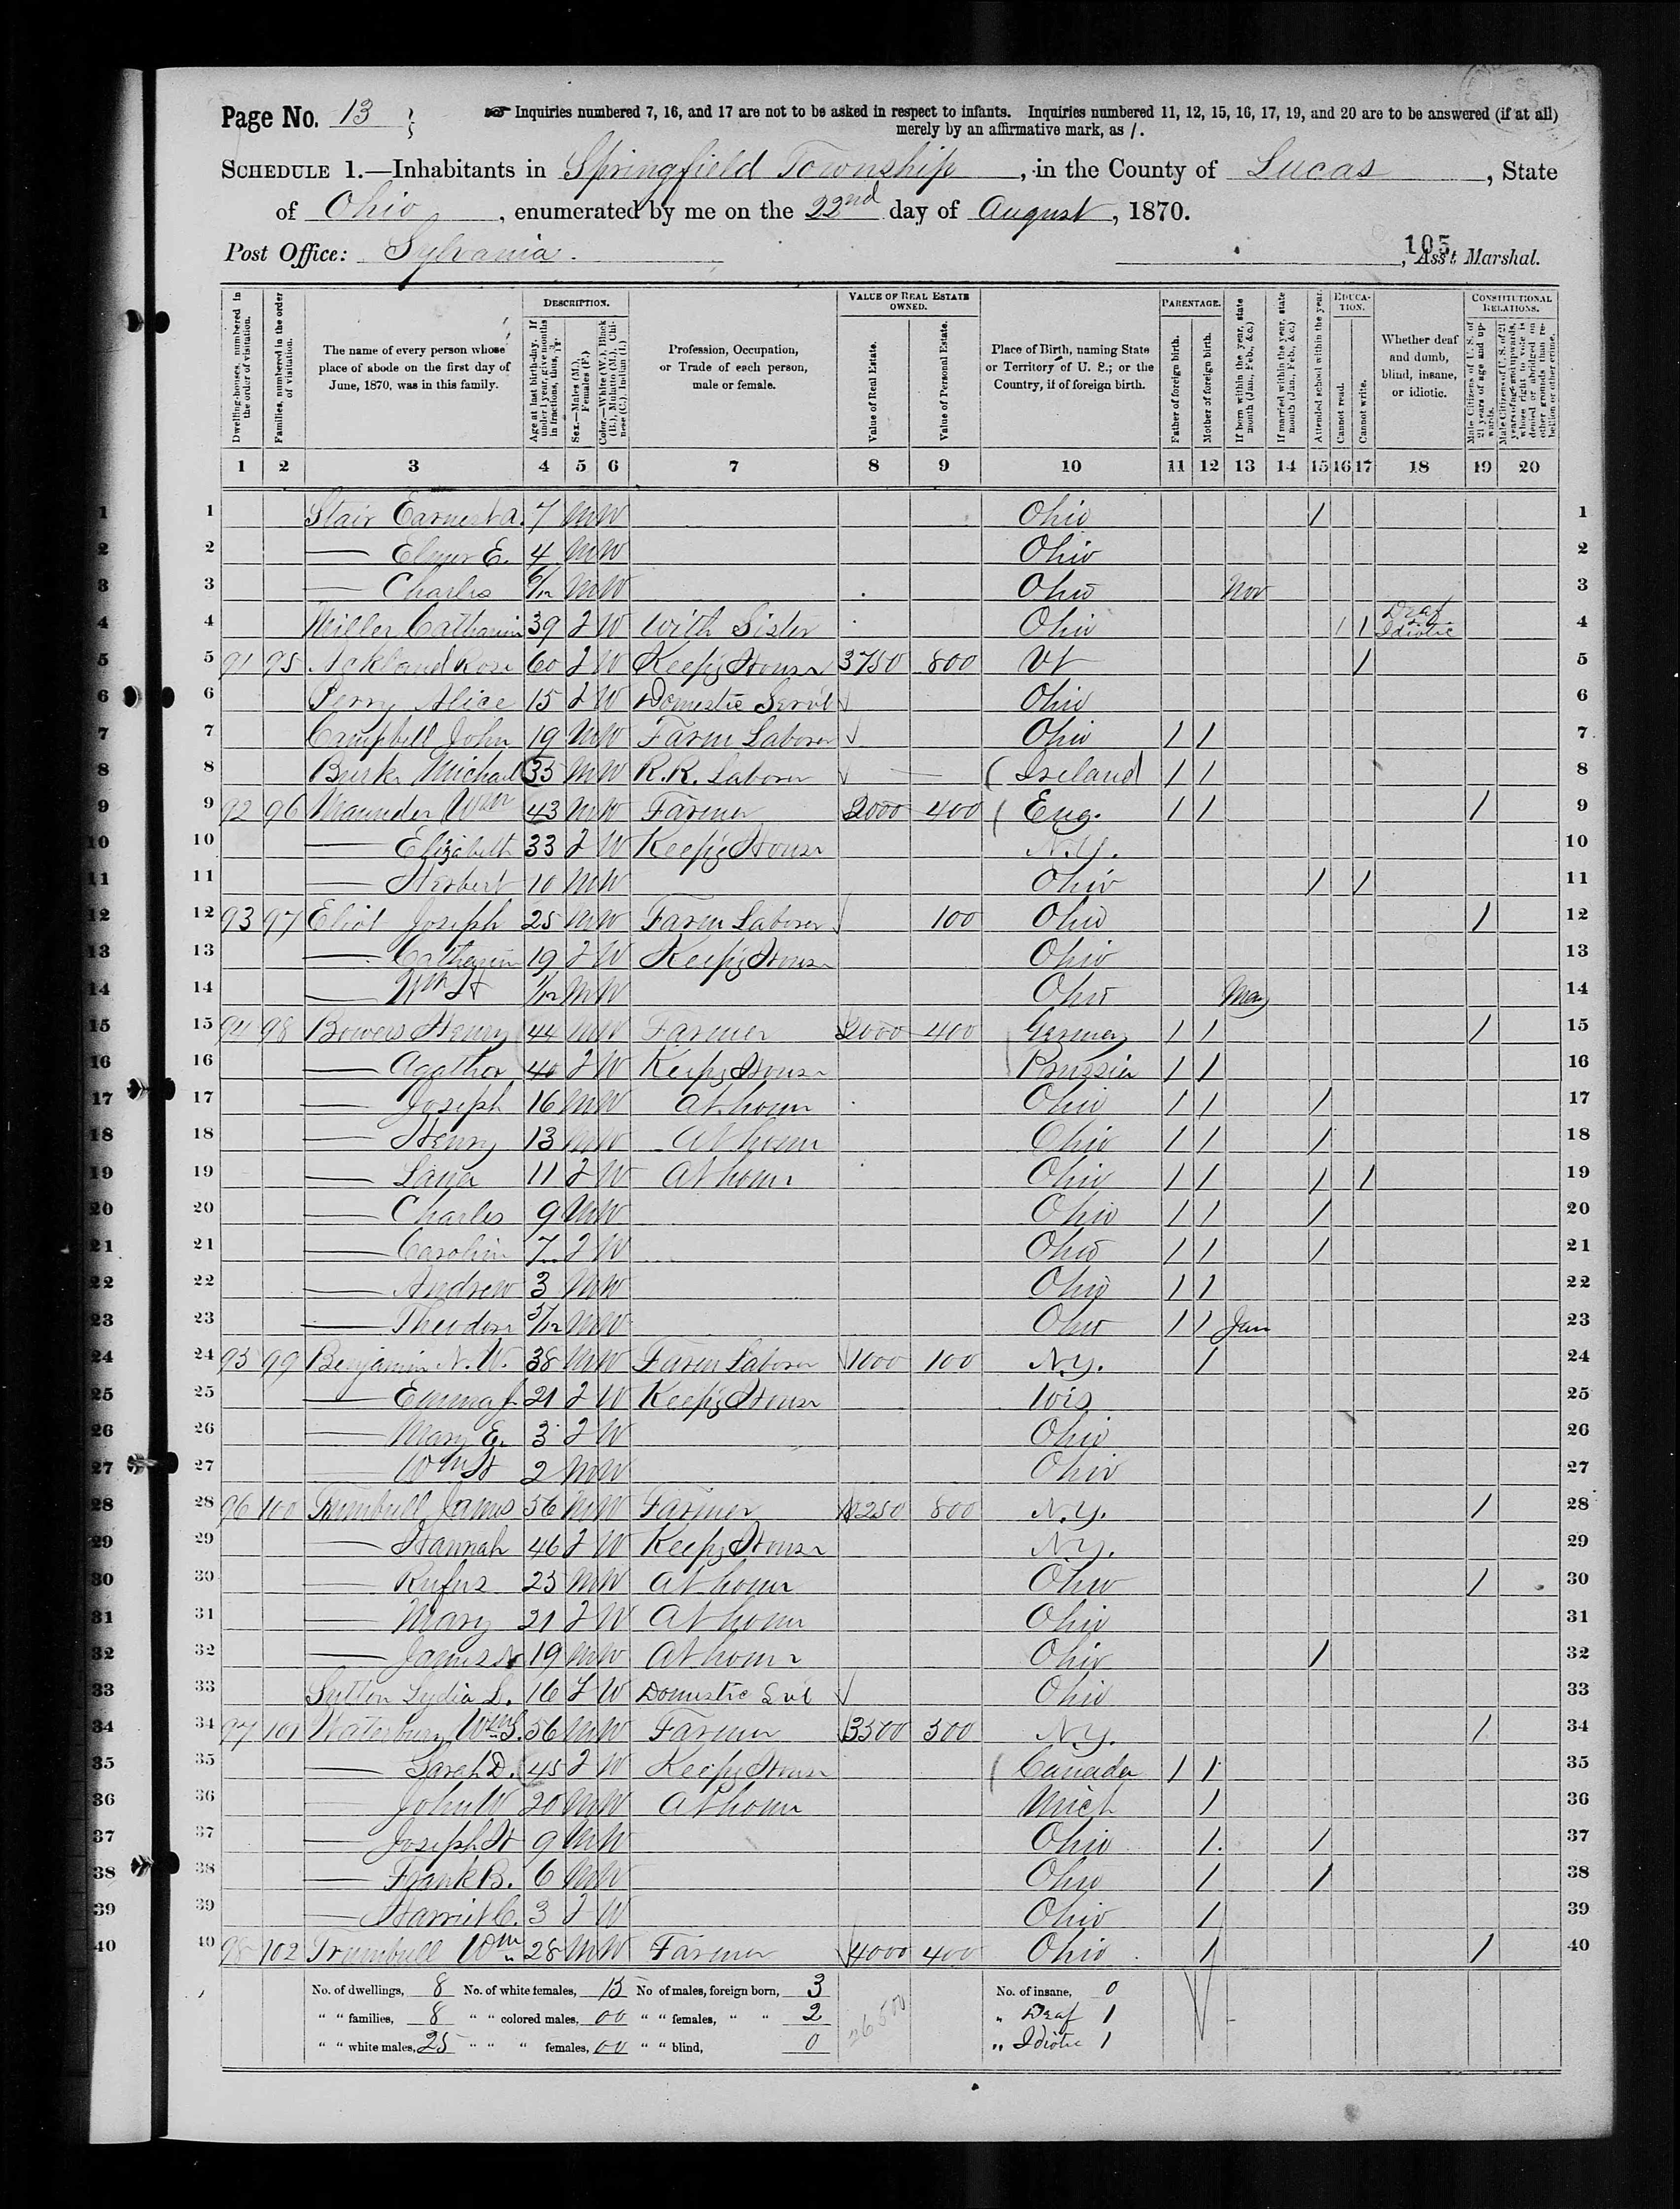 Page No. 13
☞ Inquiries numbered 7, 16, and 17 are not to be asked in respect to infants. Inquiries numbered 11, 12, 15, 16, 17, 19, and 20 are to be answered (if at all)
merely by an affirmative mark, as /.
SCHEDULE 1.—Inhabitants in Springfield Township, in the County of Lucas, State
of Ohio, enumerated by me on the 22nd day of August, 1870.
Post Office: Sylvania.
105
, Ass't Marshal.
Dwelling-houses, numbered in the order of visitation.
Families, numbered in the order of visitation.
The name of every person whose place of abode on the first day of June, 1870, was in this family.
DESCRIPTION.
Age at last birth-day. If under 1 year, give months in fractions, thus, 3/12
Sex.—Males (M.), Females (F.)
Color.—White (W.), Black (B.), Mulatto (M.), Chinese (C.), Indian (I.)
Profession, Occupation, or Trade of each person, male or female.
VALUE OF REAL ESTATE OWNED.
Value of Real Estate.
Value of Personal Estate.
Place of Birth, naming State or Territory of U. S.; or the Country, if of foreign birth.
PARENTAGE.
Father of foreign birth.
Mother of foreign birth.
If born within the year, state month (Jan., Feb., &c.)
If married within the year, state month (Jan., Feb., &c.)
EDUCATION.
Attended school within the year.
Cannot read.
Cannot write.
Whether deaf and dumb, blind, insane, or idiotic.
CONSTITUTIONAL RELATIONS.
Male Citizens of U. S. of 21 years of age and upwards.
Male Citizens of U. S. of 21 years of age and upwards, whose right to vote is denied or abridged on other grounds than rebellion or other crime.
1 2 3 4 5 6 7 8 9 10 11 12 13 14 15 16 17 18 19 20
1 Stair Earnest A. 7 M W Ohio / 1
2 — Elmer E. 4 M W Ohio 2
3 — Charles 6/12 M W Ohio Nov 3
4 Miller Catharin 39 F W With Sister Ohio / / Deaf Idiotic 4
5 91 95 Ackland Rose 60 F W Keep'g House 3750 800 Vt / 5
6 Perry Alice 15 F W Domestic Serv't Ohio 6
7 Campbell John 19 M W Farm Laborer Ohio / / 7
8 Burke Michael 35 M W R.R. Laborer — Ireland / / 8
9 92 96 Maunder Wm 43 M W Farmer 2000 400 Eng. / / / 9
10 — Elizabeth 33 F W Keep'g House N.Y. 10
11 — Herbert 10 M W Ohio / / 11
12 93 97 Eliot Joseph 25 M W Farm Laborer 100 Ohio / 12
13 — Catharin 19 F W Keep'g House Ohio 13
14 — Wm H 1/12 M W Ohio May 14
15 94 98 Bowers Henry 44 M W Farmer 2000 400 Germany / / / 15
16 — Agatha 40 F W Keep'g House Prussia / / 16
17 — Joseph 16 M W At home Ohio / / / 17
18 — Henry 13 M W At home Ohio / / / 18
19 — Lana 11 F W At home Ohio / / / / 19
20 — Charles 9 M W Ohio / / / 20
21 — Carolin 7 F W Ohio / / / 21
22 — Andrew 3 M W Ohio / / 22
23 — Theodore 5/12 M W Ohio / / Jan 23
24 95 99 Benjamin N. W. 38 M W Farm Laborer 1000 100 N.Y. / 24
25 — Emma J. 21 F W Keep'g House Wis 25
26 — Mary E. 3 F W Ohio 26
27 — Wm H 2 M W Ohio 27
28 96 100 Trumbull James 56 M W Farmer 800 N.Y. / 28
29 — Hannah 46 F W Keep'g House N.Y. 29
30 — Rufus 23 M W At home Ohio / 30
31 — Mary 21 F W At home Ohio 31
32 — James 19 M W At home Ohio / 32
33 Sutton Lydia L. 16 F W Domestic Ohio 33
34 97 101 Waterbury Wm S. 56 M W Farmer 3500 500 N.Y. / 34
35 — Sarah D. 45 F W Keep'g House Canada / / 35
36 — John W 20 M W At home Mich / 36
37 — Joseph H 9 M W Ohio / / 37
38 — Frank B. 6 M W Ohio / / 38
39 — Harriet C. 3 F W Ohio / 39
40 98 102 Trumbull Wm 28 M W Farmer 4000 400 Ohio / / 40
No. of dwellings, 8 No. of white females, 15 No of males, foreign born, 3 No. of insane, 0
" " families, 8 " " colored males, 00 " " females, " " 2 " Deaf 1
" " white males, 25 " " " females, 00 " " blind, 0 " Idiotic 1
26500